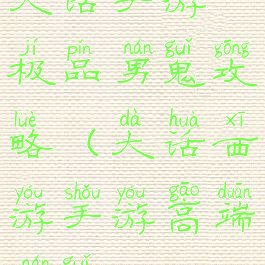 大话手游
jí pǐn nán guǐ gōng
极品男鬼攻
lüè dà huà xī
略（大话西
yóu shǒu yóu gāo duān
游手游高端
nán guǐ